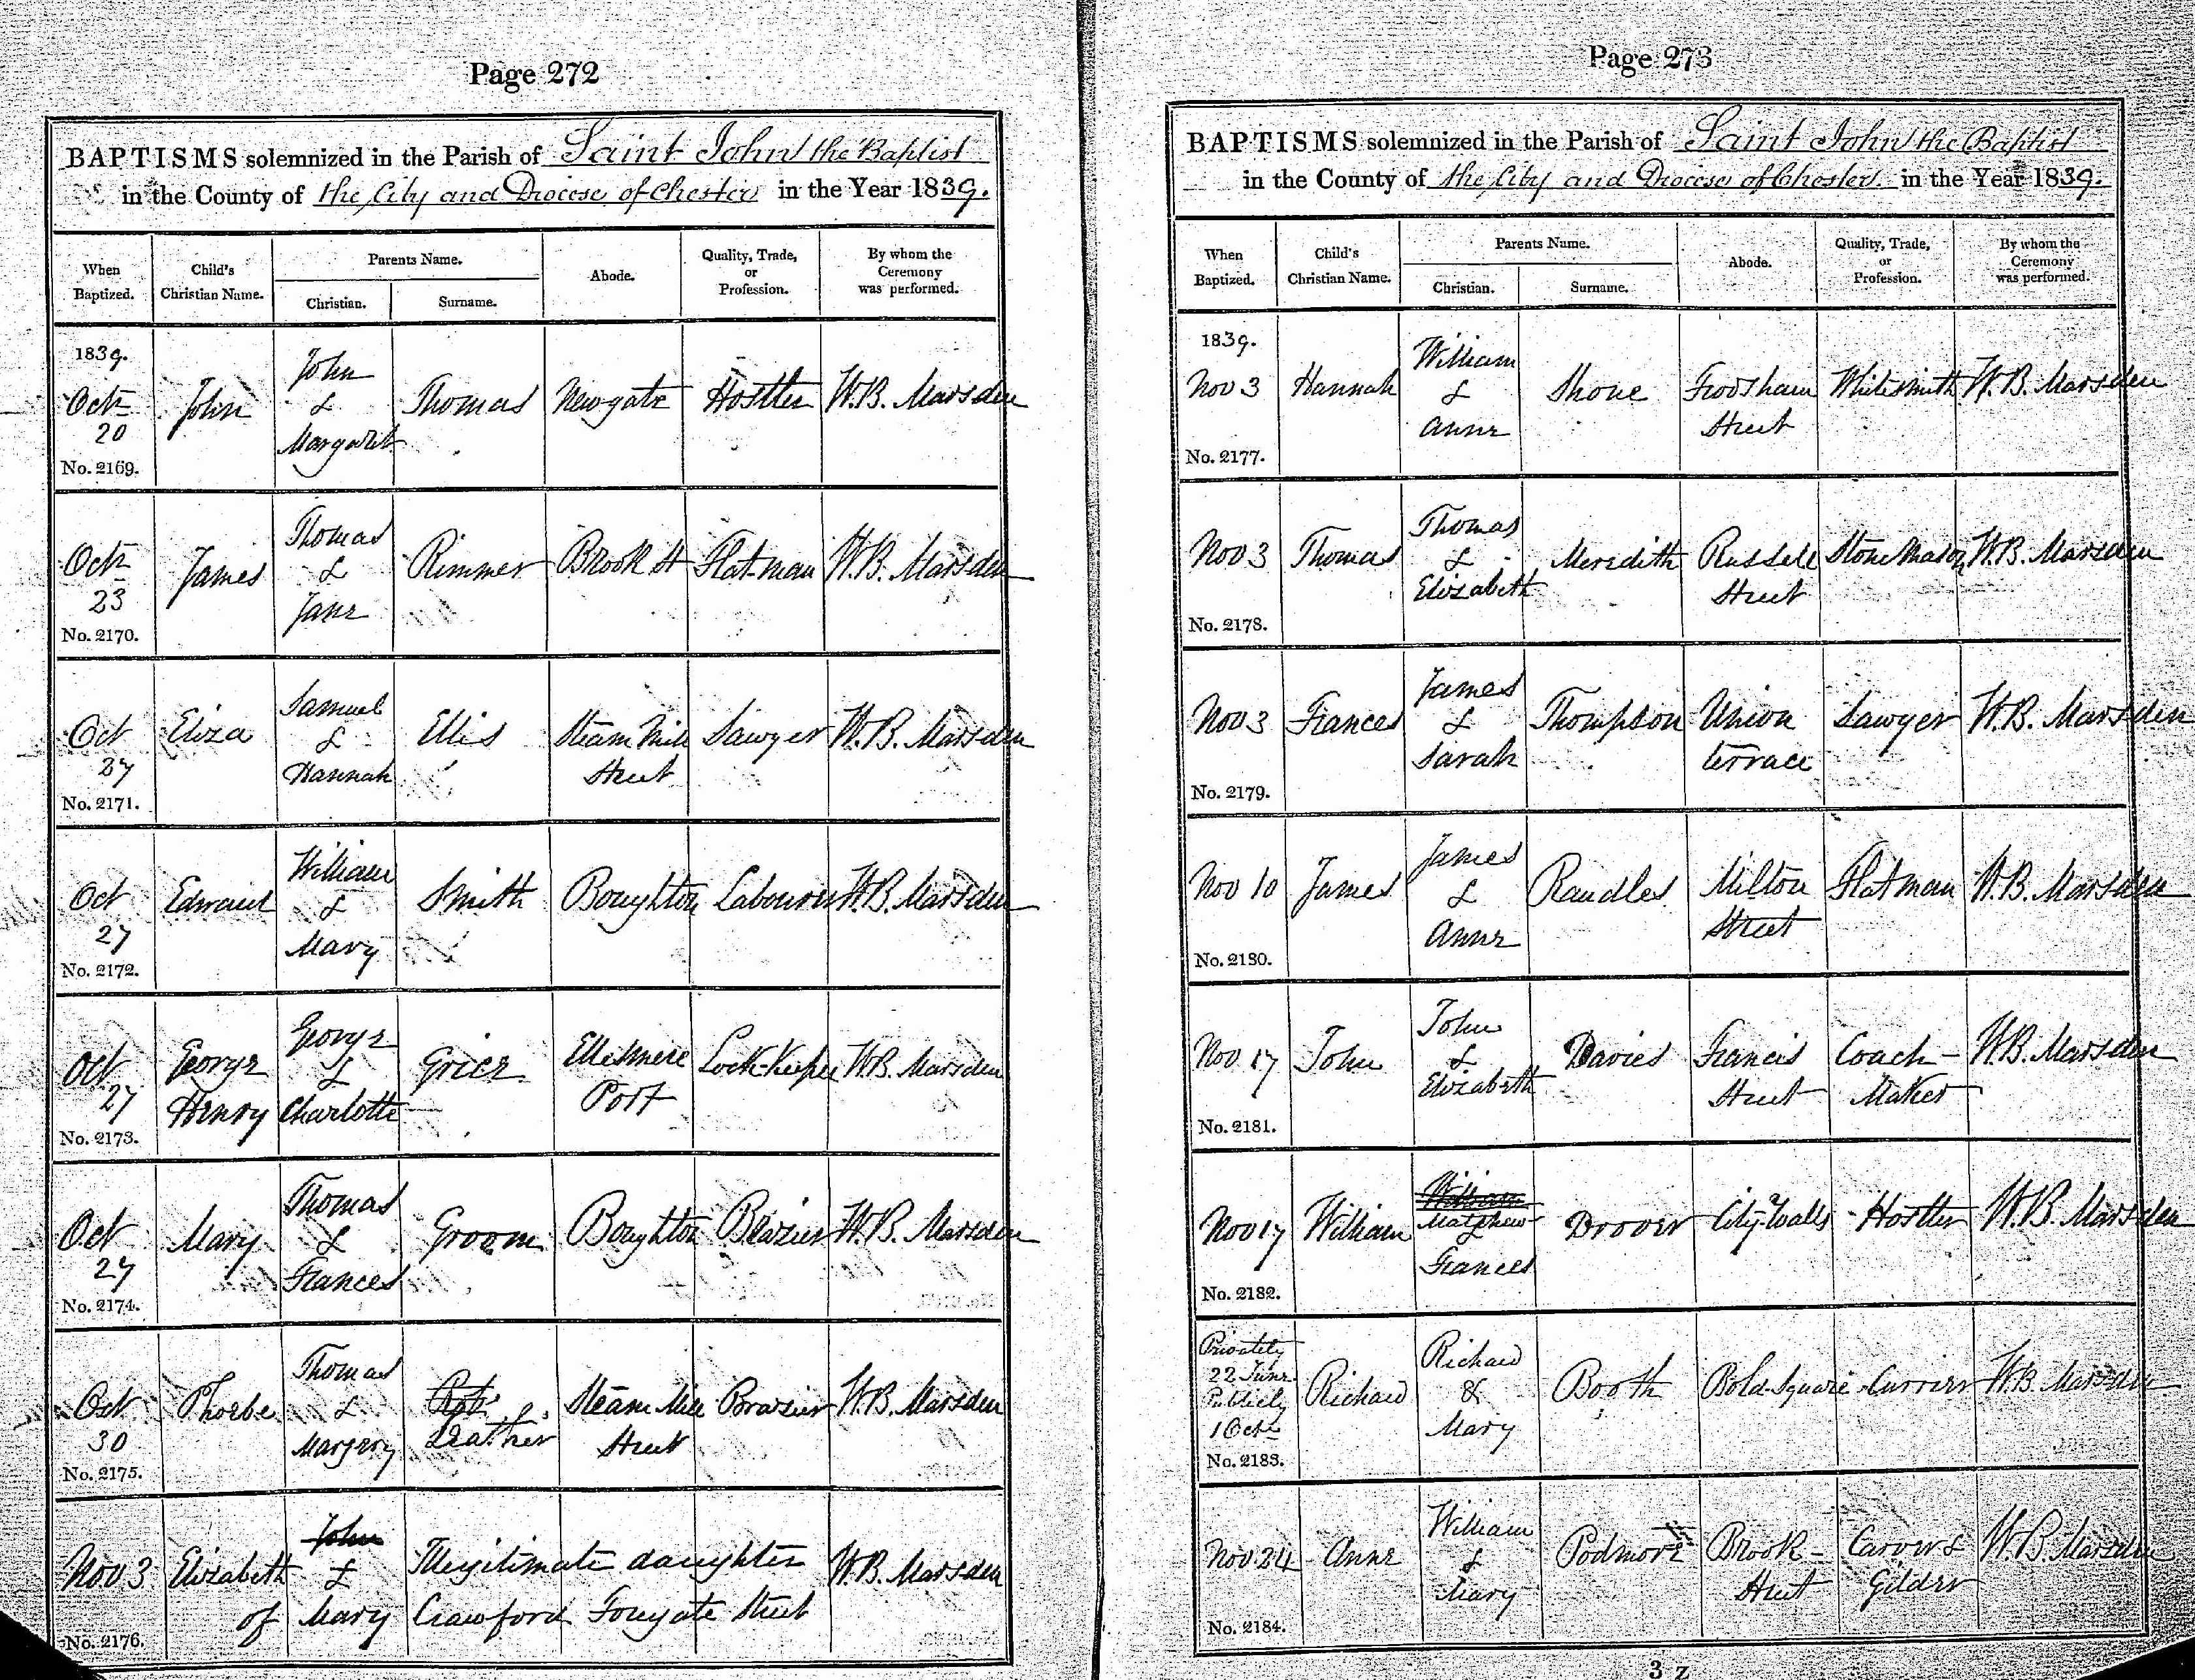 Page 272
BAPTISMS solemnized in the Parish of Saint John the Baptist
in the County of the City and Diocese of Chester in the Year 1839.
When Baptized. Child's Christian Name. Parents Name. Christian. Surname. Abode. Quality, Trade, or Profession. By whom the Ceremony was performed.
1839.
Octr 20 John John & Margaret Thomas Newgate Hostler W.B. Marsden
No. 2169.
Octr 23 James Thomas & Jane Rimmer Brook St Flatman W.B. Marsden
No. 2170.
Oct 27 Eliza Samuel & Hannah Ellis Steam Mill Street Sawyer W.B. Marsden
No. 2171.
Oct 27 Edward William & Mary Smith Boughton Labourer W.B. Marsden
No. 2172.
Oct 27 George Henry George & Charlotte Grier Ellesmere Port Lock-Keeper W.B. Marsden
No. 2173.
Oct 27 Mary Thomas & Frances Groom Boughton Brazier W.B. Marsden
No. 2174.
Oct 30 Phoebe Thomas & Margery Leather Steam Mill Street Brazier W.B. Marsden
No. 2175.
Nov 3 Elizabeth John & Illegitimate daughter W.B. Marsden
of Mary Crawford Foregate Street
No. 2176.
Page 273
BAPTISMS solemnized in the Parish of Saint John the Baptist
in the County of the City and Diocese of Chester in the Year 1839.
When Baptized. Child's Christian Name. Parents Name. Christian. Surname. Abode. Quality, Trade, or Profession. By whom the Ceremony was performed.
1839.
Nov 3 Hannah William & Anne Shone Frodsham Street Whitesmith W.B. Marsden
No. 2177.
Nov 3 Thomas Thomas & Elizabeth Meredith Russell Street Stone Mason W.B. Marsden
No. 2178.
Nov 3 Frances James & Sarah Thompson Union terrace Sawyer W.B. Marsden
No. 2179.
Nov 10 James James & Anne Randles Milton Street Flatman W.B. Marsden
No. 2180.
Nov 17 John John & Elizabeth Davies Francis Street Coach-Maker W.B. Marsden
No. 2181.
Nov 17 William William Matthew & Frances Drover City Walls Hostler W.B. Marsden
No. 2182.
Privately 22 June Publicly 1 Octr Richard Richard & Mary Booth Bold Square Currier W.B. Marsden
No. 2183.
Nov 24 Anne William & Mary Podmore Brook-Street Carver & Gilder W.B. Marsden
No. 2184.
3 Z